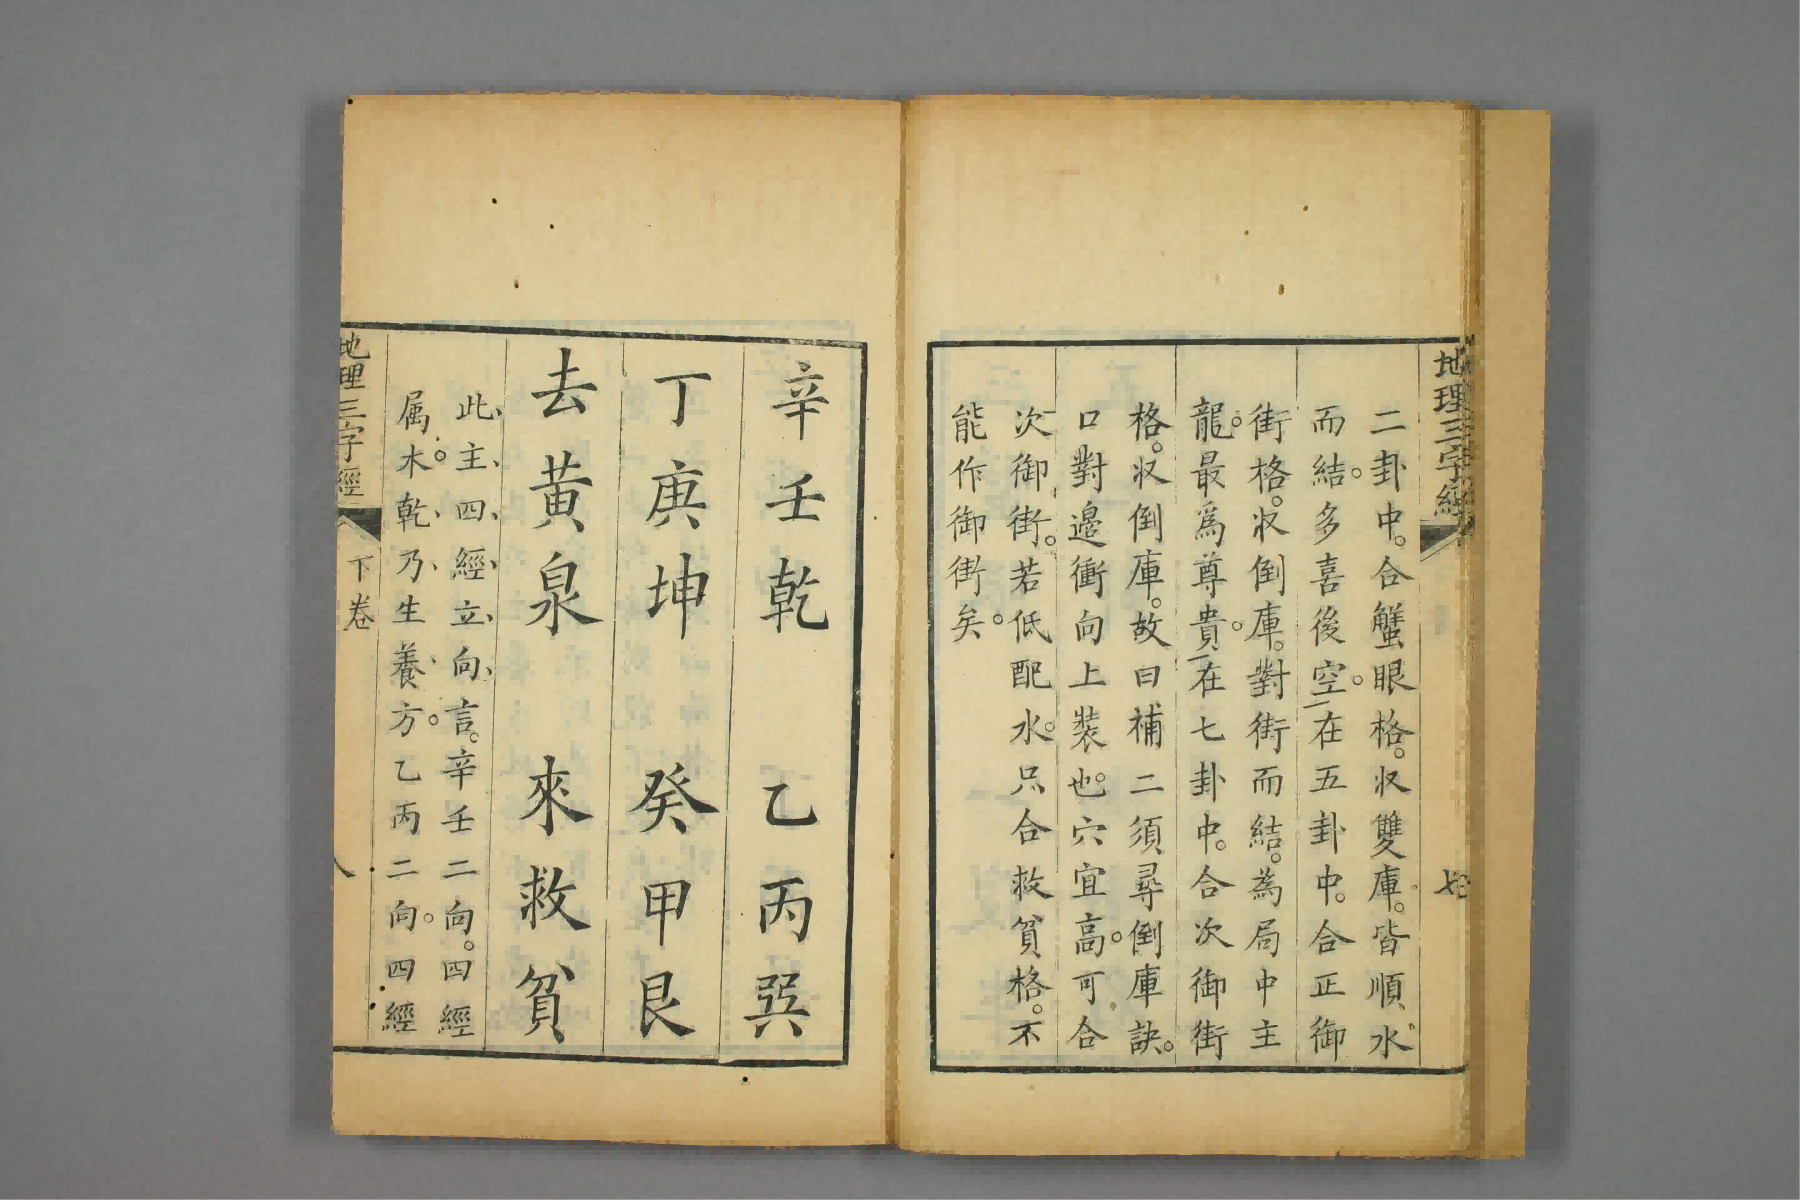 地理三字經
七
二卦中。合蟹眼格。收雙庫。皆順水
而結。多喜後空。一在五卦中。合正御
街格。收倒庫。對街而結。為局中主
龍。最爲尊貴。一在七卦中。合次御街
格。收倒庫。故曰補二須尋倒庫訣。
口對邉衝向上裝也。穴宜高。可合
次御街。若低配水。只合救貧格。不
能作御街矣。
辛壬乾　乙丙巽
丁庚坤　癸甲艮
去黃泉　來救貧
此、主、四、經、立、向、言。辛壬二向。四經
属木。乾、乃、生養、方。乙丙二向。四經
地理三字經
下卷
八